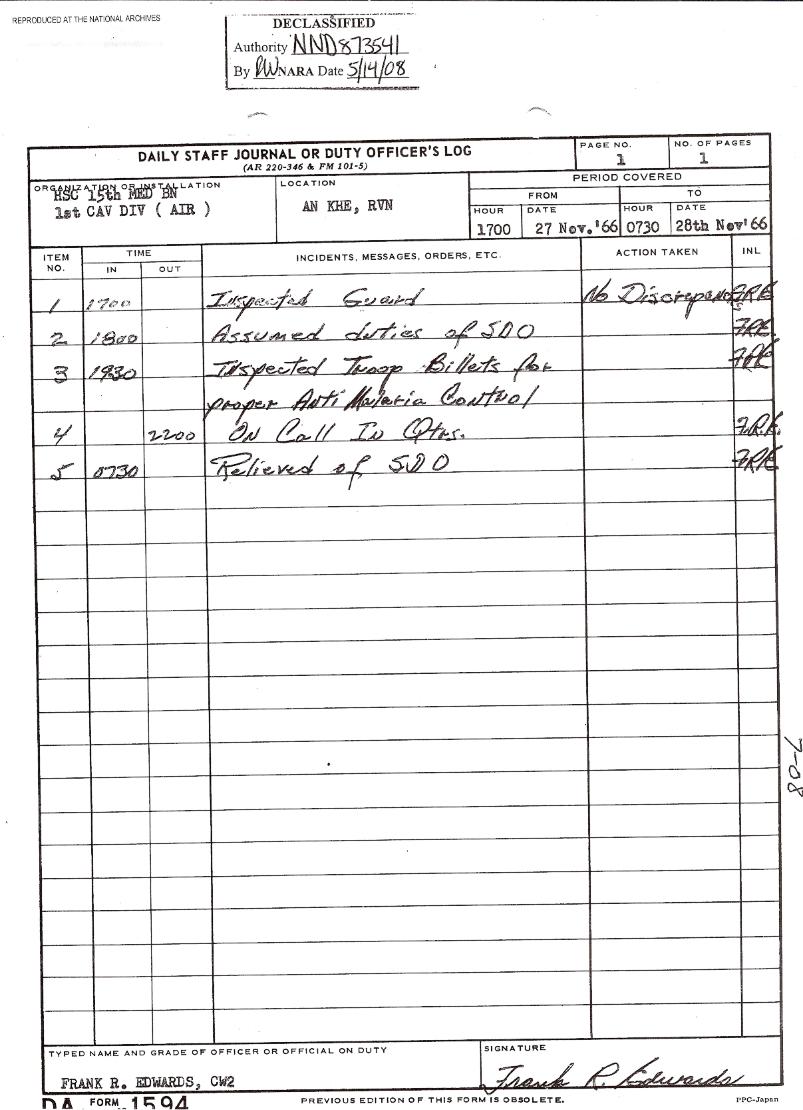 REPRODUCED AT THE NATIONAL ARCHIVES
DECLASSIFIED
Authority NND873541
By RW NARA Date 5/14/08
DAILY STAFF JOURNAL OR DUTY OFFICER'S LOG
(AR 220-346 & FM 101-5)
PAGE NO.
1
NO. OF PAGES
1
ORGANIZATION OR INSTALLATION
HSC 15th MED BN
1st CAV DIV ( AIR )
LOCATION
AN KHE, RVN
PERIOD COVERED
FROM TO
HOUR DATE HOUR DATE
1700 27 Nov.'66 0730 28th Nov'66
ITEM NO. TIME IN OUT INCIDENTS, MESSAGES, ORDERS, ETC. ACTION TAKEN INL
1 1700 Inspected Guard No Discrepancies FRE
2 1800 Assumed duties of SDO FRE.
3 1930 Inspected Troop Billets for FRE
proper Anti Malaria Control
4 2200 On Call In Qtrs. F.R.E.
5 0730 Relieved of SDO FRE
7-08
TYPED NAME AND GRADE OF OFFICER OR OFFICIAL ON DUTY
FRANK R. EDWARDS, CW2
SIGNATURE
Frank R. Edwards
DA FORM 1594
PREVIOUS EDITION OF THIS FORM IS OBSOLETE.
PPC-Japan